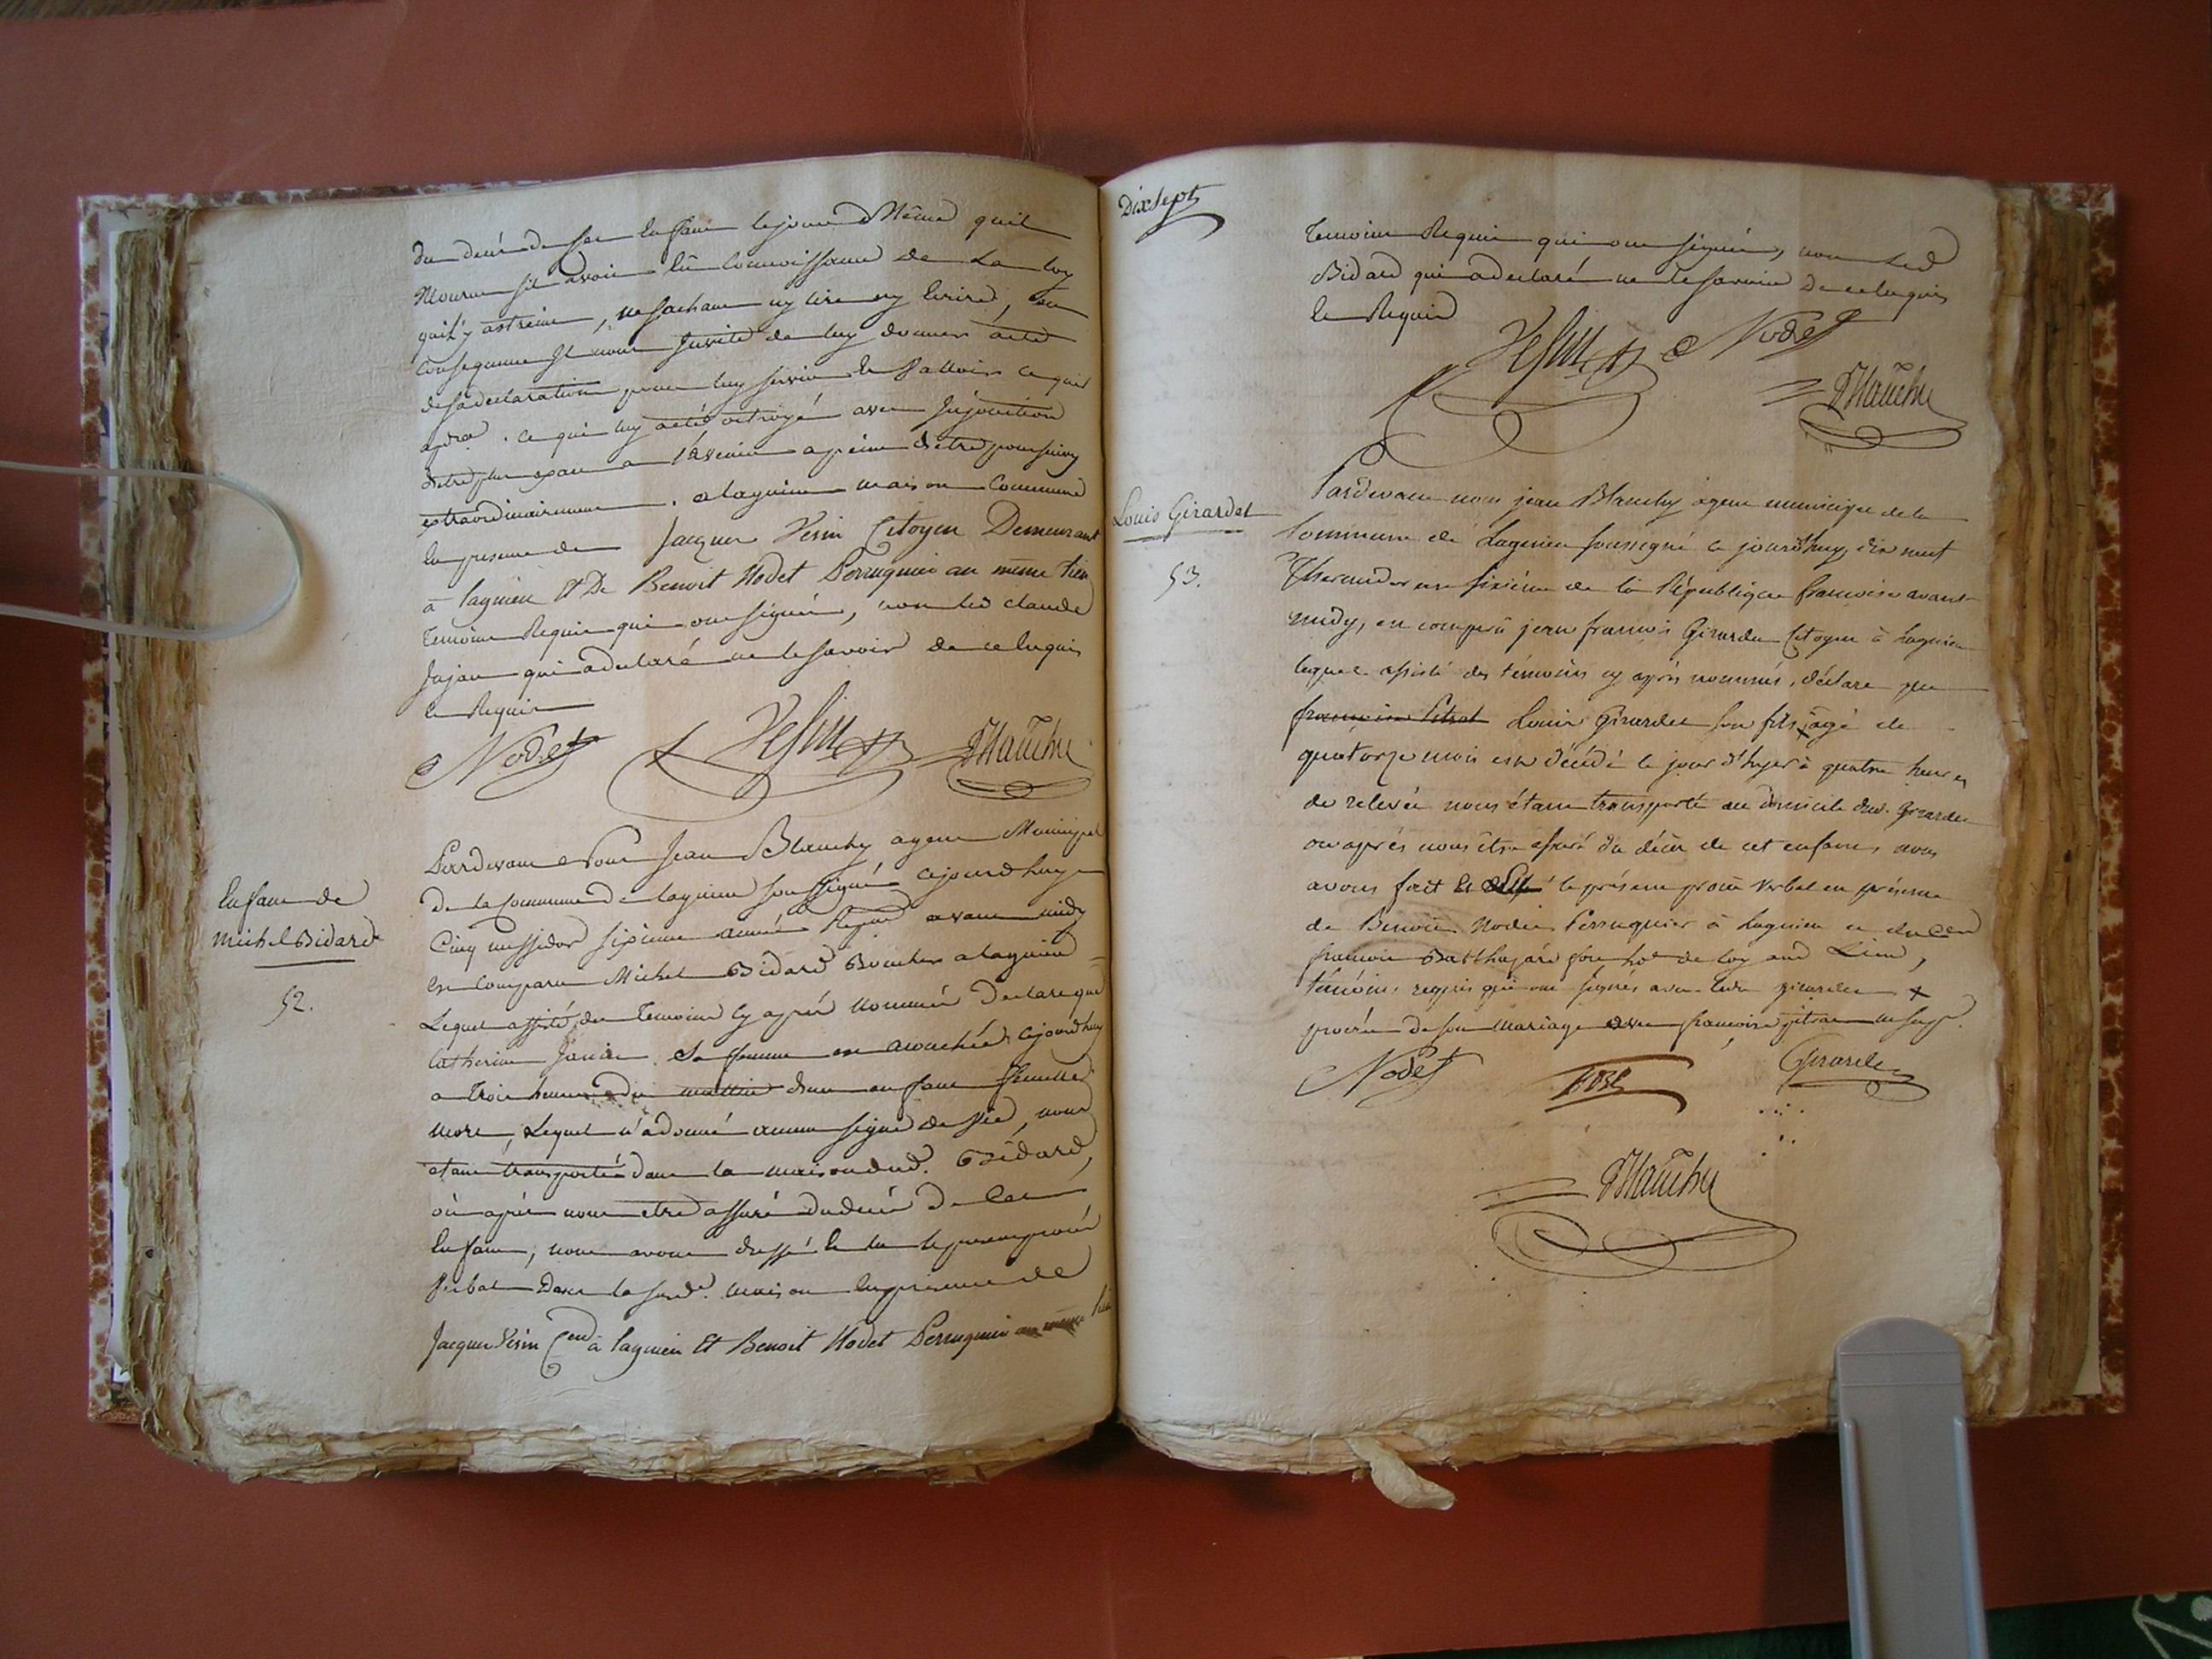 du decés de son Enfant le jour Même quil
Mourut sil avoit eû connoissance de La loy
quil'y astreint, ne sachant ny lire ny Ecrire, en
Consequence Il nous Invite de luy donner acte
de sa declaration pour luy servir Et Valloir ce que
ce qui luy a eté octroyé avec Injonction
d'etre plus exact a l'avenir a peine d'etre poursuivy
extraordinairement. a lagnieu maison Commune
En presence de Jacques Vesin Citoyen Demeurant
à lagnieu Et De Benoit Nodet Perruquier au même lieu
Temoins Requis qui ont signés, non led claude
Jujat qui a declaré ne le savoir de ce Enquis
et Requis
Nodet Vesin Blanchy
Enfant de
Michel Bidard
52.
Pardevant Nous Jean Blanchy agent Municipal
de la Commune de lagnieu soussigné cejourdhuy
Cinq messidor sixieme année Repub avant midy
Est Comparu Michel Bidard Boucher a lagnieu
Lequel assisté des Temoins Cy aprés Nommés Declare que
Catherine sa femme est acouchée cejourdhuy
a trois heures du mattin d'un enfant femelle
mort, Lequel n'a donné aucun signe de Vie, nous
etant transporté dans la maison dud. Bidard,
où aprés nous etre assuré du decés De Cet
Enfant, nous avons dressé Et Clu le present procés
Verbal Dans la susd. maison En presence de
Jacques Vesin Cen à lagnieu Et Benoit Nodet Perruquier au même lieu
Dixsept
Temoins Requis qui ont signés, non Led
Bidard qui a declaré ne le savoir De ce Enquis
Et Requis
Vesin Nodet
Blanchy
Louis Girardet
53.
Pardevant nous jean Blanchy agent municipal de la
Commune de Lagnieu soussigné ce jourd'huy dix neuf
Thermidor an sixième de la République françoise avant
midy, est comparû jean françois Girardet Citoyen à Lagnieu
lequel assisté des témoins cy après nommés, déclare que
françoise Pitrat Louis Girardet son fils + âgé de
quatorze mois est décédé le jour d'hyer à quatre heures
de relevée nous étant transporté au domicile dud. Girardet
ou après nous être assuré du décès de cet enfant, nous
avons fait et le présent procès verbal en présence
de Benoit Nodet Perruquier à Lagnieu et du Cen
françois de loy aud Lieu,
témoins requis qui ont signés avec led. girardet +
procréé de son mariage avec françoise pitrat
Nodet Girardet
Blanchy